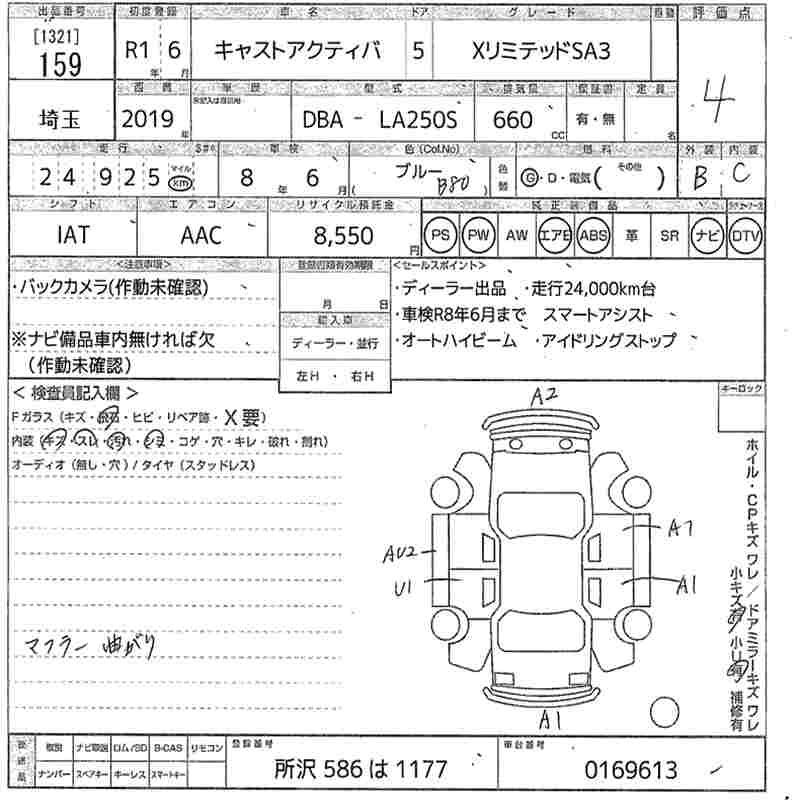 出品番号 初度登録 車名 ドア グレード 評価点
[1321]
159 R1年 6月 キャストアクティバ 5 XリミテッドSA3 4
埼玉 2019年 型式 DBA - LA250S 排気量 660 cc 保証書 有・無 定員 名
走行 車検 色(Col.No) 燃料 外装 内装
24925 マイル km 8年 6月 ブルー B80 色替 G・D・電気( その他 ) B C
シフト エアコン リサイクル預託金 純正装備品
IAT AAC 8,550円 PS PW AW エアB ABS 革 SR ナビ DTV
<注意事項> 登録書類有効期限 <セールスポイント>
・バックカメラ(作動未確認) 月 日 ・ディーラー出品 ・走行24,000km台
輸入車 ・車検R8年6月まで スマートアシスト
※ナビ備品車内無ければ欠 ディーラー・並行 ・オートハイビーム ・アイドリングストップ
(作動未確認) 左H ・ 右H
< 検査員記入欄 > キーロック
Fガラス (キズ・飛石・ヒビ・リペア跡・X要)
内装 (キズ・スレ・汚れ・シミ・コゲ・穴・キレ・破れ・割れ)
オーディオ (無し・穴) / タイヤ (スタッドレス)
A2
A7
AU2
U1
A1
A1
マフラー 曲がり
ホイル・CPキズワレ/ドアミラーキズワレ
小キズ有 小U有 補修有
後送品 取説 ナビ取説 ロム/SD B-CAS リモコン 登録番号 車台番号
ナンバー スペアキー キーレス スマートキー 所沢 586 は 1177 0169613